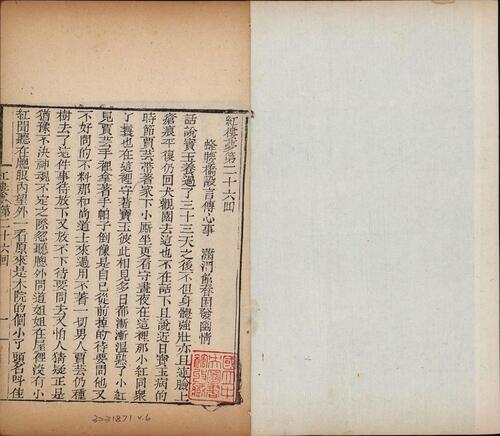 紅樓夢第二十六回
蜂腰橋設言傳心事 瀟湘館春困發幽情
話說寶玉養過了三十三天之後不但身體強壯亦且連臉上
瘡痕平復仍回大觀園去這也不在話下且說近日寶玉病的
時節賈芸帶著家下小廝坐更看守晝夜在這裡那小紅同衆
了鬟也在這裡守著寶玉彼此相見多日都漸漸溫熟了小紅
見賈芸手裡拿著手帕子倒像是自已從前掉的待要問他又
不好問的不料那和尚道士來過用不著一切男人賈芸仍種
樹去了這件事待放下又放不下待要問去又怕人猜疑正是
猶豫不決神魂不定之際忽聽牕外問道姐姐在屋裡沒有小
紅聞聽在牕眼內望外一看原來是本院的個小了頭名叫佳
紅樓夢 第二十六回 一
3031871 v.6